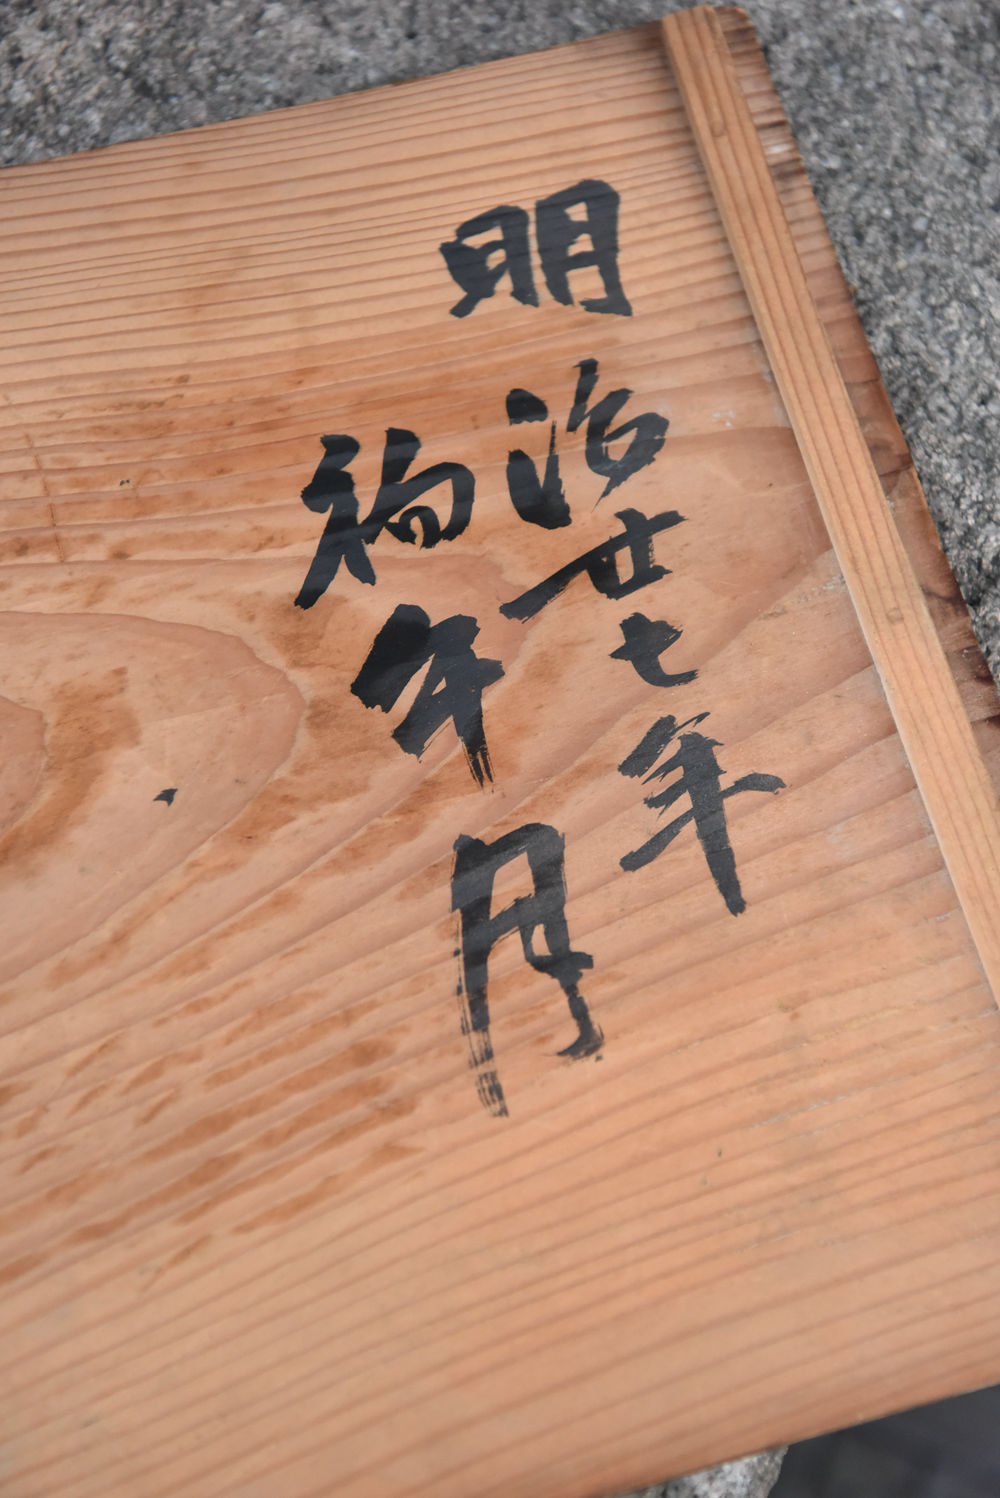 明治廿七年
初午月